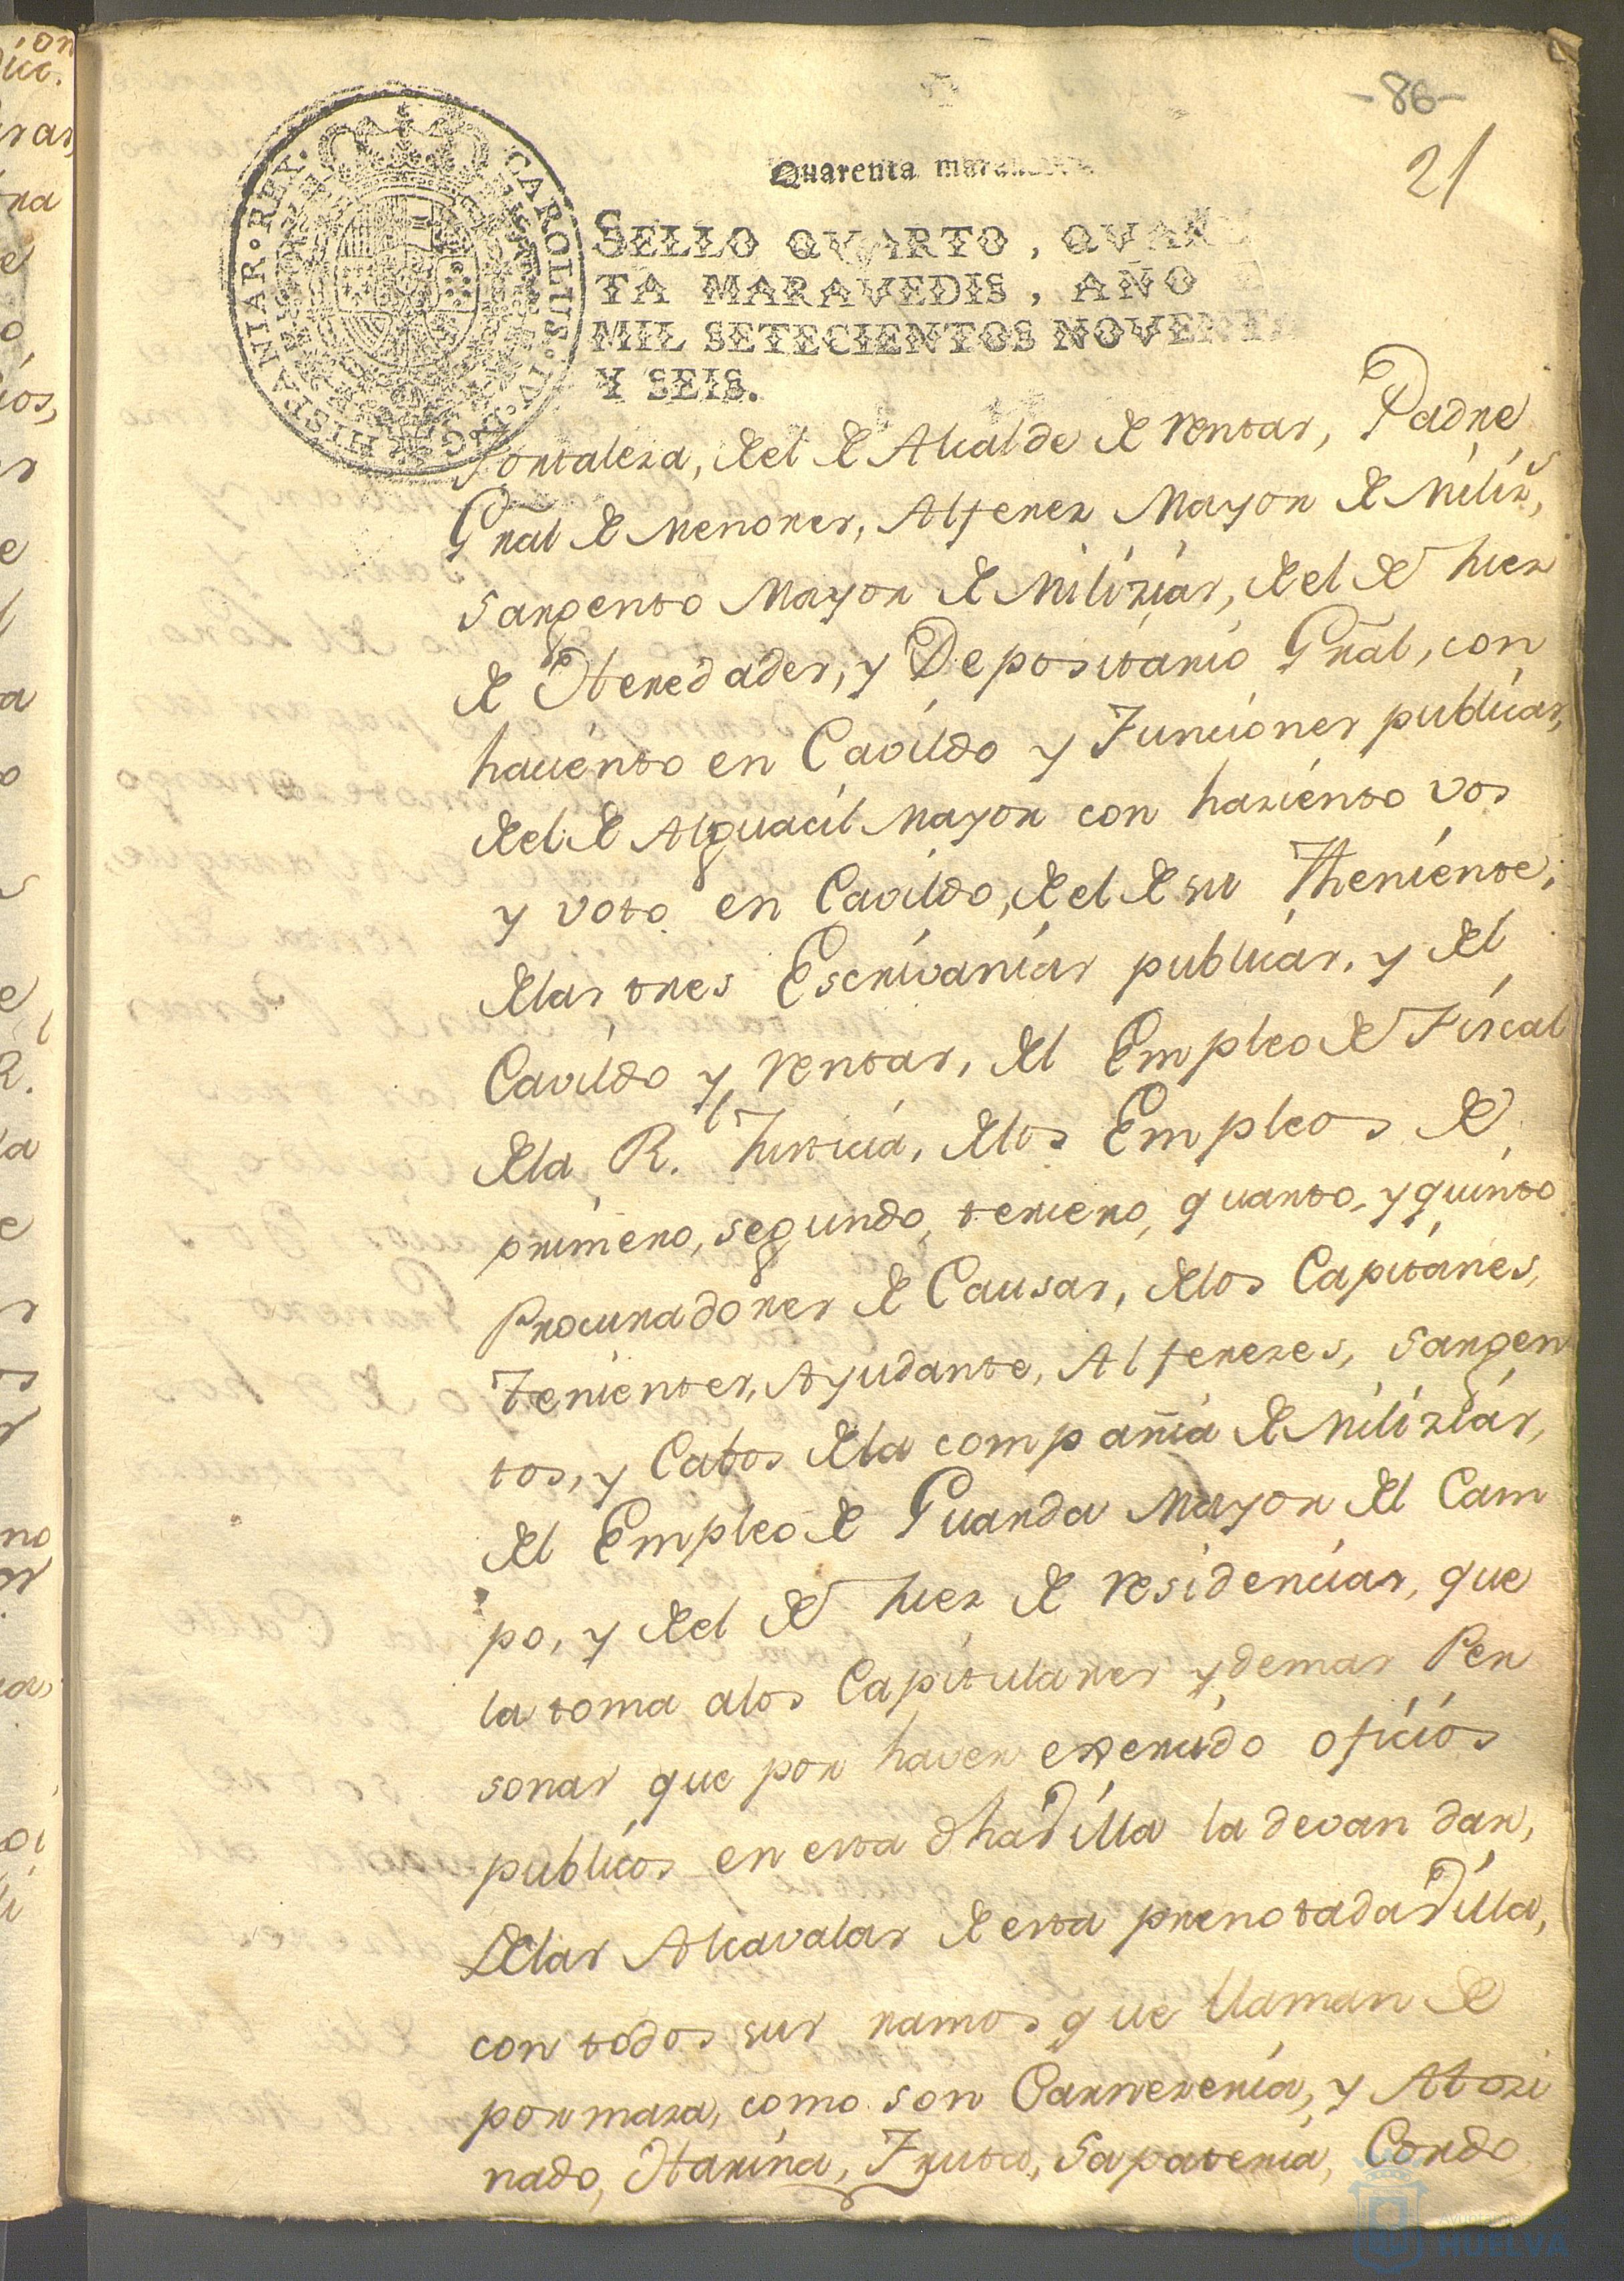 -86-
21
Quarenta
CAROLUS · IV · D · G · HISPANIAR · REX ·
SELLO QVARTO, QVAR
TA MARAVEDIS, AÑO
MIL SETECIENTOS NOVENT
Y SEIS.
fortaleza, del de Alcalde de rentas, Padre
Gral de menores, Alferez Mayor de Miliz.s,
Sargento Mayor de Milizias, del de Juez
de Heredades, y Depositario Gral, con
haciento en Cavildo y Funciones publicas,
del de Alguacil mayor con haziento vos
y voto en Cavildo, del de su Theniente,
de las tres Escrivanias publicas, y del
Cavildo y rentas, del Empleo de Fiscal
de la R.l Justicia, de los Empleos de
primero, segundo, tercero, quarto, y quinto
Procuradores de Causas, de los Capitanes,
Tenientes, Ayudante, Alferezes, Sargen
tos, y Cabos de la compañia de Milizias,
del Empleo de Guarda Mayor del Cam
po, y del de Juez de residencias, que
la toma a los Capitulares y demas Per
sonas que por haver exercido oficios
publicos en esta dha Villa la devan dar,
de las Alcavalas de esta prenotada Villa,
con todos sus ramos que llaman de
por maza, como son Carnezeria, y Atozi
nado, Harina, Fruta, Sapateria, Cordo
Ayuntamiento
HUELVA